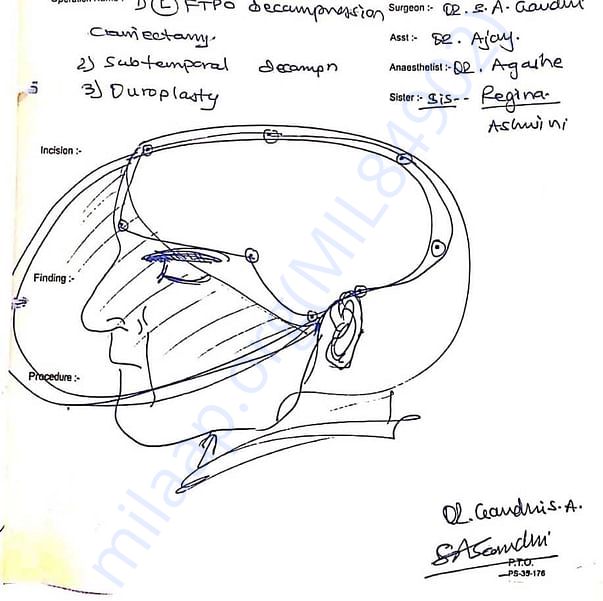 1) (L) FTPO decompression Surgeon :- DR. S. A. Gandhi
Craniectomy. Asst :- DR. Ajay.
2) Subtemporal decompn Anaesthetist :- DR. Agashe
3) Duroplasty Sister :- Sis-- Regina
Ashwini
Incision :-
Finding :-
Procedure :-
milaap.org(MIL84902)
DR. Gandhi S. A.
SAGandhi
P.T.O.
PS-35-176